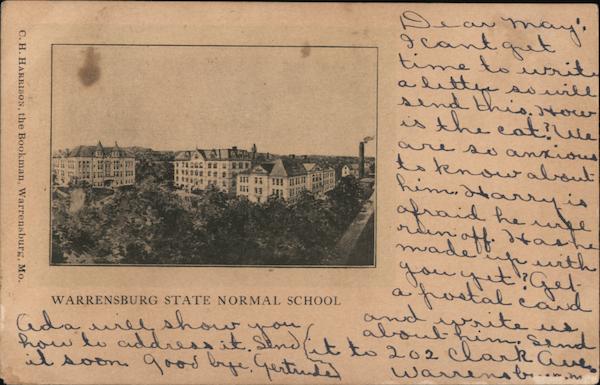 C. H. Harrison, the Bookman, Warrensburg, Mo.
WARRENSBURG STATE NORMAL SCHOOL
Dear May:
I cant get
time to write
a letter so will
send this. How
is the cat? We
are so anxious
to know about
him. Harry is
afraid he will
run off. Has he
made up with
you yet? Get
a postal card
and write us
about him. Send
it to 202 Clark Ave,
Warrensb
Ada will show you
how to address it. Send
it soon Good bye. Gertrude